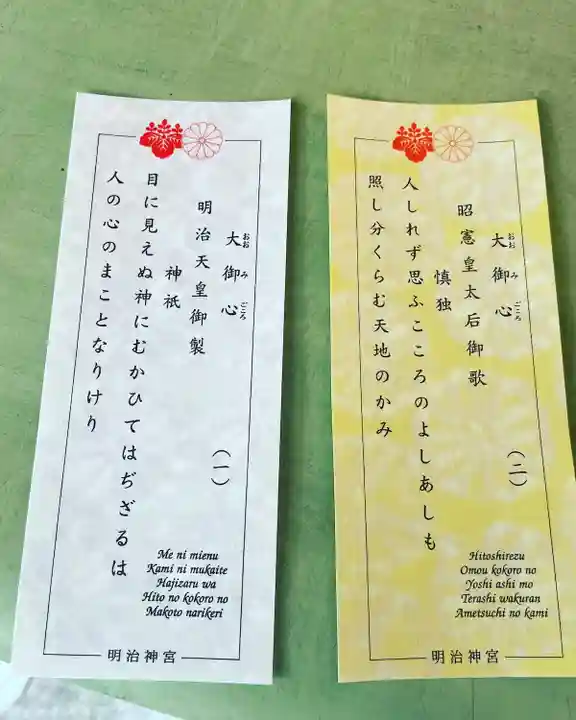 大御心
おおみごころ
(一)
明治天皇御製
神祇
目に見えぬ神にむかひてはぢざるは
人の心のまことなりけり
Me ni mienu
Kami ni mukaite
Hajizaru wa
Hito no kokoro no
Makoto narikeri
明治神宮
大御心
おおみごころ
(二)
昭憲皇太后御歌
慎独
人しれず思ふこころのよしあしも
照し分くらむ天地のかみ
Hitoshirezu
Omou kokoro no
Yoshi ashi mo
Terashi wakuran
Ametsuchi no kami
明治神宮